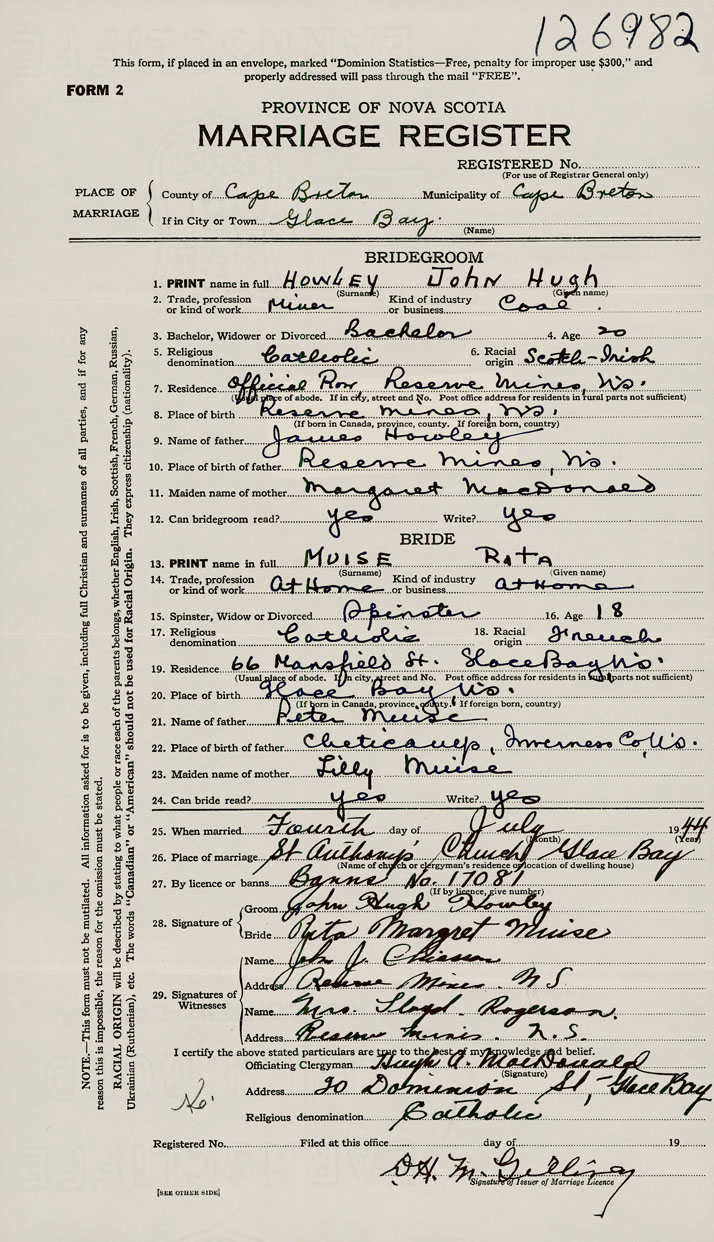 126982
This form, if placed in an envelope, marked "Dominion Statistics—Free, penalty for improper use $300," and
properly addressed will pass through the mail "FREE".
FORM 2
PROVINCE OF NOVA SCOTIA
MARRIAGE REGISTER
REGISTERED No.
(For use of Registrar General only)
PLACE OF MARRIAGE
County of Cape Breton Municipality of Cape Breton
If in City or Town Glace Bay.
(Name)
BRIDEGROOM
1. PRINT name in full HOWLEY JOHN HUGH
(Surname) (Given name)
2. Trade, profession or kind of work Miner Kind of industry or business Coal.
3. Bachelor, Widower or Divorced Bachelor 4. Age 20
5. Religious denomination Catholic 6. Racial origin Scotch-Irish
7. Residence Official Row Reserve Mines, N.S.
(Usual place of abode. If in city, street and No. Post office address for residents in rural parts not sufficient)
8. Place of birth Reserve Mines, N.S.
(If born in Canada, province, county. If foreign born, country)
9. Name of father James Howley
10. Place of birth of father Reserve Mines, N.S.
11. Maiden name of mother Margaret MacDonald
12. Can bridegroom read? yes Write? yes
BRIDE
13. PRINT name in full MUISE RITA
(Surname) (Given name)
14. Trade, profession or kind of work At Home Kind of industry or business at Home
15. Spinster, Widow or Divorced Spinster 16. Age 18
17. Religious denomination Catholic 18. Racial origin French
19. Residence 66 Mansfield St. Glace Bay N.S.
(Usual place of abode. If in city, street and No. Post office address for residents in rural parts not sufficient)
20. Place of birth Glace Bay, N.S.
(If born in Canada, province, county. If foreign born, country)
21. Name of father Peter Muise
22. Place of birth of father Cheticamp, Inverness Co, N.S.
23. Maiden name of mother Lilly Muise
24. Can bride read? yes Write? yes
25. When married Fourth day of July 1944
(Month) (Year)
26. Place of marriage St Anthony's Church Glace Bay
(Name of church or clergyman's residence or location of dwelling house)
27. By licence or banns Banns No. 17081
(If by licence, give number)
28. Signature of
Groom John Hugh Howley
Bride Rita Margret Muise
29. Signatures of Witnesses
Name John J. Chiasson
Address Reserve Mines. N S
Name Mrs. Lloyd. Rogerson.
Address Reserve Mines. N.S.
I certify the above stated particulars are true to the best of my knowledge and belief.
Officiating Clergyman Hugh A. MacDonald
(Signature)
Address 20 Dominion St, Glace Bay
Religious denomination Catholic
Registered No. Filed at this office day of 19
Signature of Issuer of Marriage Licence
[SEE OTHER SIDE]
NOTE.—This form must not be mutilated. All information asked for is to be given, including full Christian and surnames of all parties, and if for any
reason this is impossible, the reason for the omission must be stated.
RACIAL ORIGIN will be described by stating to what people or race each of the parents belongs, whether English, Irish, Scottish, French, German, Russian,
Ukrainian (Ruthenian), etc. The words "Canadian" or "American" should not be used for Racial Origin. They express citizenship (nationality).